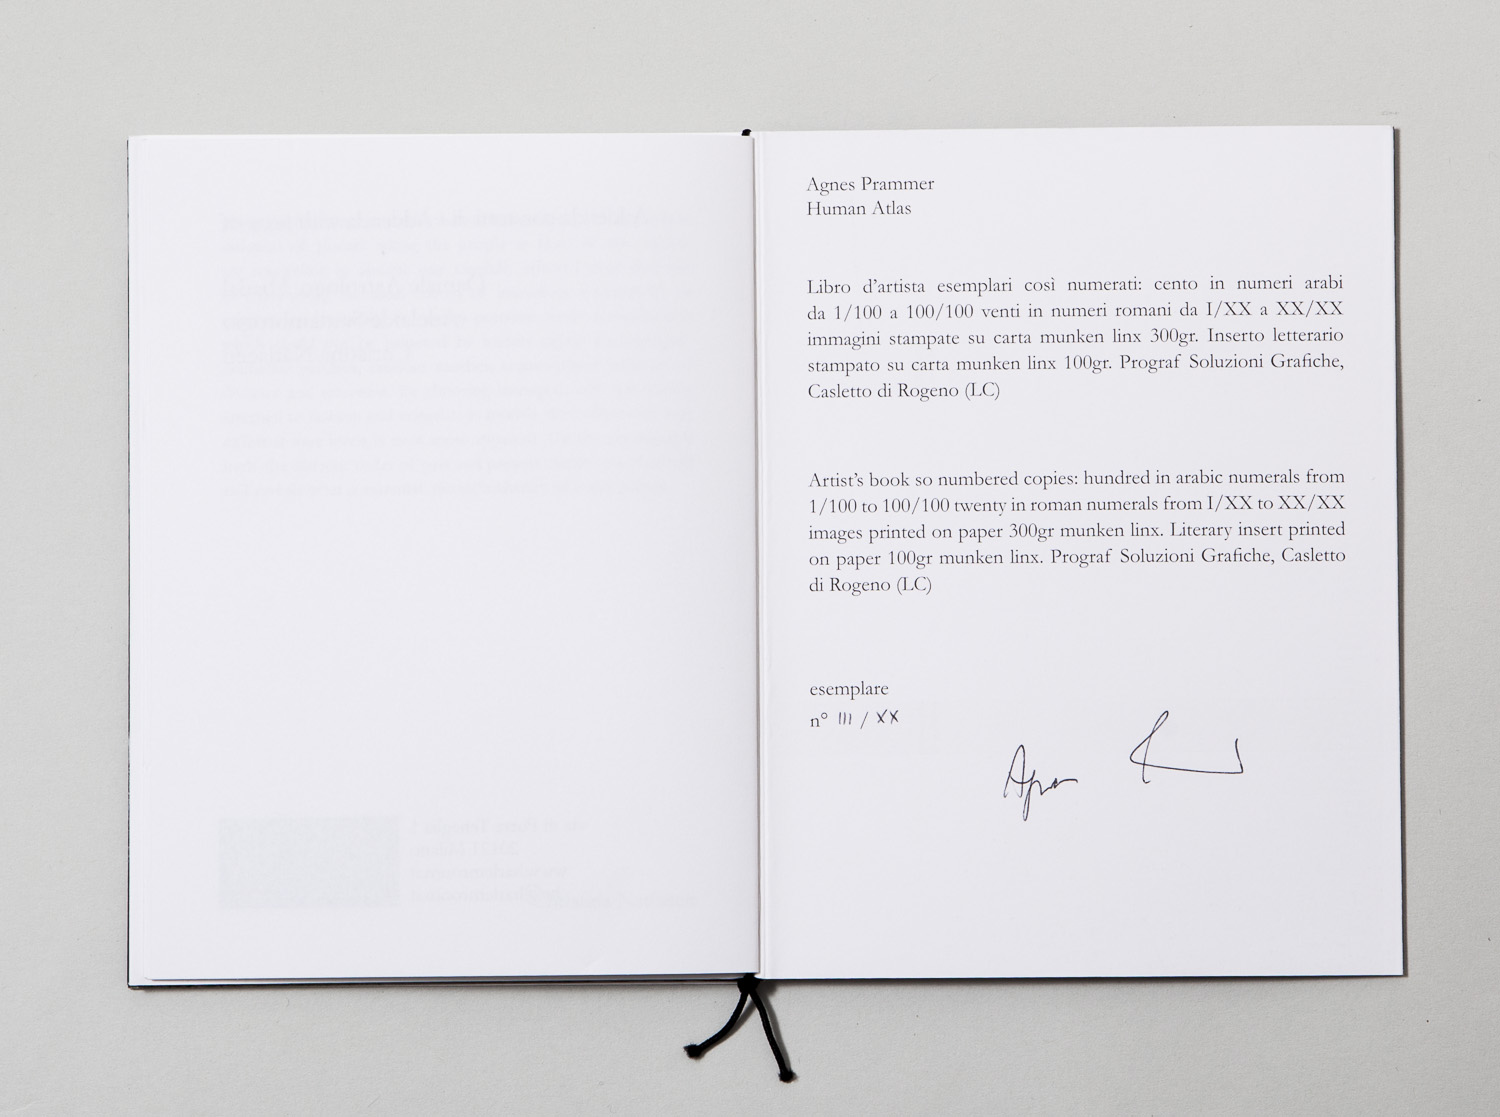 Agnes Prammer
Human Atlas
Libro d'artista esemplari così numerati: cento in numeri arabi
da 1/100 a 100/100 venti in numeri romani da I/XX a XX/XX
immagini stampate su carta munken linx 300gr. Inserto letterario
stampato su carta munken linx 100gr. Prograf Soluzioni Grafiche,
Casletto di Rogeno (LC)
Artist's book so numbered copies: hundred in arabic numerals from
1/100 to 100/100 twenty in roman numerals from I/XX to XX/XX
images printed on paper 300gr munken linx. Literary insert printed
on paper 100gr munken linx. Prograf Soluzioni Grafiche, Casletto
di Rogeno (LC)
esemplare
n° III / XX